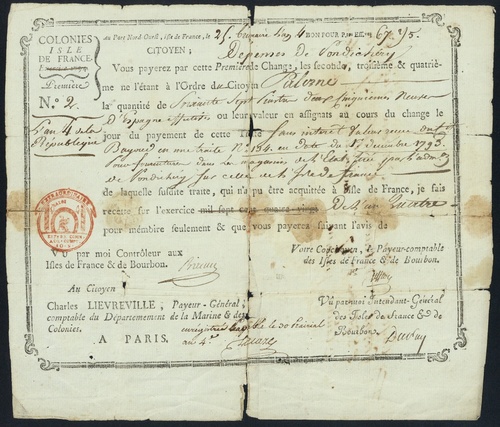 COLONIES
ISLE
DE FRANCE
Première
N.º 2.
L'an 4 de la
République
Au Port Nord-Ouest, isle de France, le 25 an 4 BON POUR P. 67. 2/5.
CITOYEN, Dépenses de Pondichéry
Vous payerez par cette Première de Change, les seconde, troisième & quatriè-
me ne l'étant à l'Ordre du Citoyen Palerne
la quantité de Soixante Sept Piastres deux Cinquièmes Neuves
d'Espagne Effectives ou leur valeur en assignats au cours du change le
jour du payement de cette Lettre Sans intérêt Valeur reçue
en une traite N.º 134. en date du 17 décembre 1793.
Pour fourniture dans les magasins de l'Etat, faite par l'adm.
de Pondichéry sur celle de l'Isle de france
de laquelle susdite traite, qui n'a pu être acquittée à Isle de France, je fais
recette sur l'exercice mil sept cent quatre-vingt De l'an Quatre
pour mémoire seulement & que vous payerez suivant l'avis de
VU par moi Contrôleur aux
Isles de France & de Bourbon.
Votre Concitoyen, le Payeur-comptable
des Isles de France & de Bourbon.
Au Citoyen
Charles LIEVREVILLE, Payeur-Général,
comptable du Département de la Marine & des
Colonies.
A PARIS.
enregistré le 30 Prairial
an 4.e
Vû par moi Intendant-Général
des Isles de France & de
Bourbon.